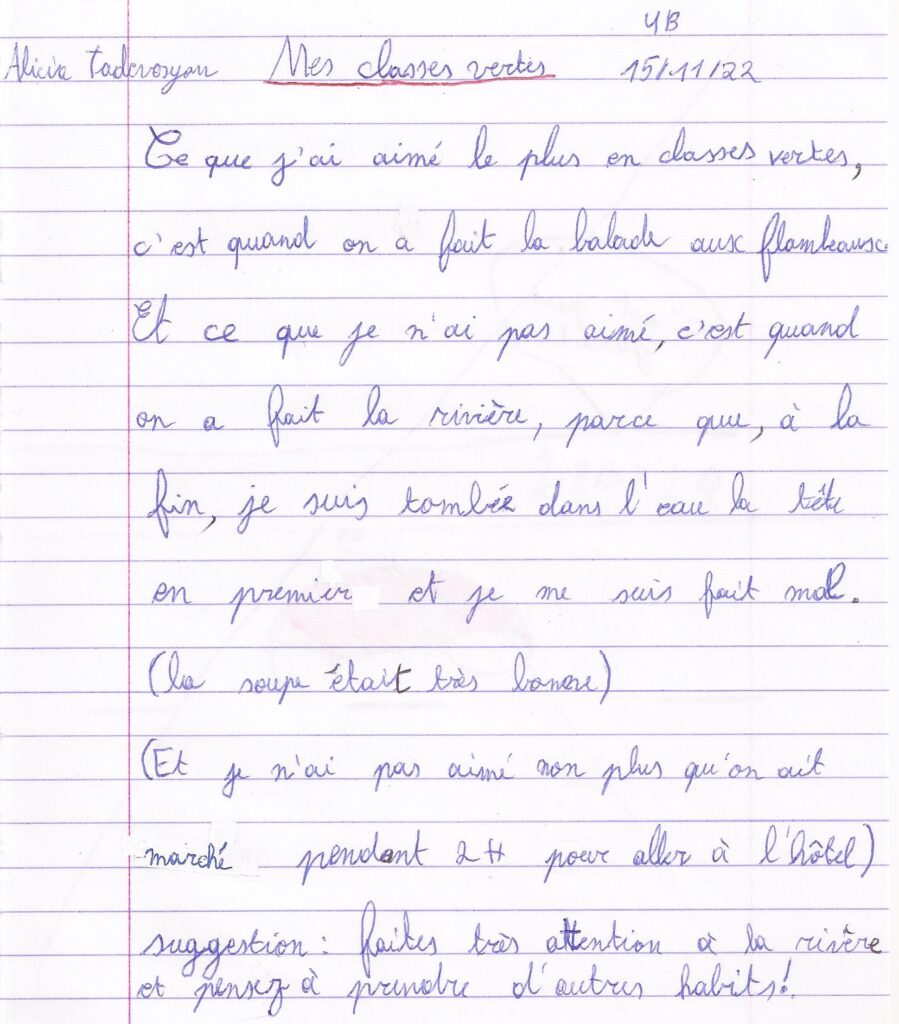 4B
Alicia Tadevosyan Mes classes vertes 15/11/22
Ce que j'ai aimé le plus en classes vertes,
c'est quand on a fait la balade aux flambeaux.
Et ce que je n'ai pas aimé, c'est quand
on a fait la rivière, parce que, à la
fin, je suis tombée dans l'eau la tête
en premier et je me suis fait mal.
(la soupe était très bonne)
(Et je n'ai pas aimé non plus qu'on ait
marché pendant 2H pour aller à l'hôtel)
suggestion : faites très attention à la rivère
et pensez à prendre d'autres habits!